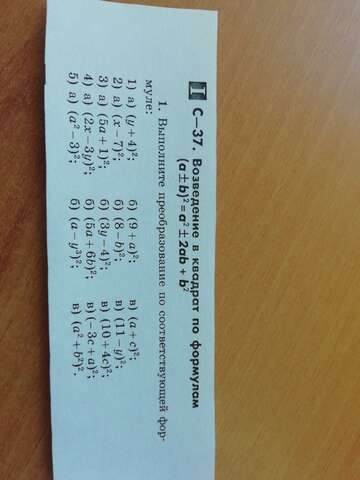 I С—37. Возведение в квадрат по формулам
(a ± b)² = a² ± 2ab + b²
1. Выполните преобразование по соответствующей фор-
муле:
1) а) (y + 4)²; б) (9 + a)²; в) (a + c)²;
2) а) (x − 7)²; б) (8 − b)²; в) (11 − y)²;
3) а) (5a + 1)²; б) (3y − 4)²; в) (10 + 4c)²;
4) а) (2x − 3y)²; б) (5a + 6b)²; в) (−3c + a)²;
5) а) (a² − 3)²; б) (a − y³)²; в) (a² + b²)².